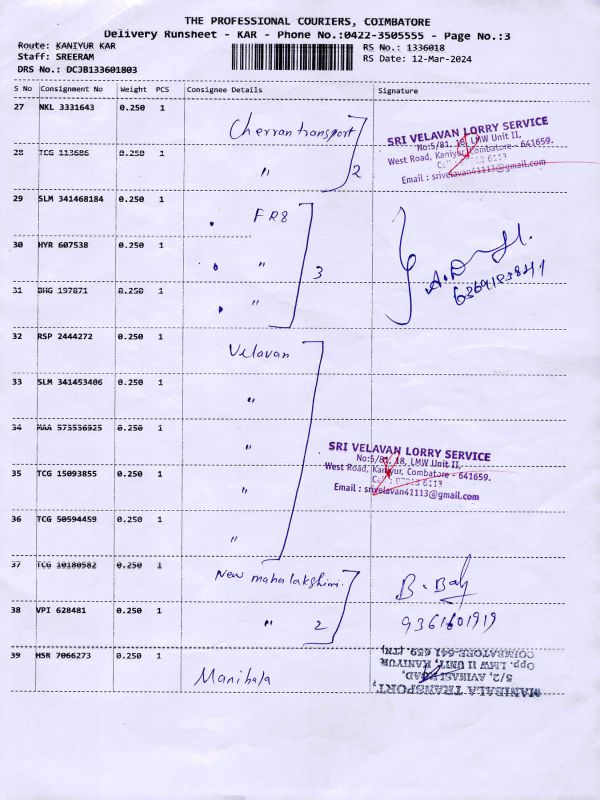 THE PROFESSIONAL COURIERS, COIMBATORE
Delivery Runsheet - KAR - Phone No.:0422-3505555 - Page No.:3
Route: KANIYUR KAR
Staff: SREERAM
DRS No.: DCJB133601803
RS No.: 1336018
RS Date: 12-Mar-2024
S No Consignment No Weight PCS Consignee Details Signature
27 NKL 3331643 0.250 1 Cherran transport
SRI VELAVAN LORRY SERVICE
No:5/81, 18, LMW Unit II,
West Road, Kaniyur, Combatore - 641659.
Email : srivelavan41113@gmail.com
28 TCG 113686 0.250 1 〃 2
29 SLM 341468184 0.250 1 FR8
30 HYR 607538 0.250 1 〃 3
31 BHG 197871 0.250 1 〃
32 RSP 2444272 0.250 1 Velavan
33 SLM 341453406 0.250 1 〃
34 MAA 573536525 0.250 1 〃
SRI VELAVAN LORRY SERVICE
No:5/81, 18, LMW Unit II,
West Road, Kaniyur, Combatore - 641659.
Email : srivelavan41113@gmail.com
35 TCG 15093855 0.250 1 〃
36 TCG 50594459 0.250 1 〃
37 TCG 10180582 0.250 1 New mahalakshimi.
38 VPI 628481 0.250 1 〃 2
9361601919
39 HSR 7066273 0.250 1 Manibala
MANIBALA TRANSPORT,
5/2, AVINASI ROAD,
Opp. LMW II UNIT, KANIYUR,
COIMBATORE-641 659. (TN)